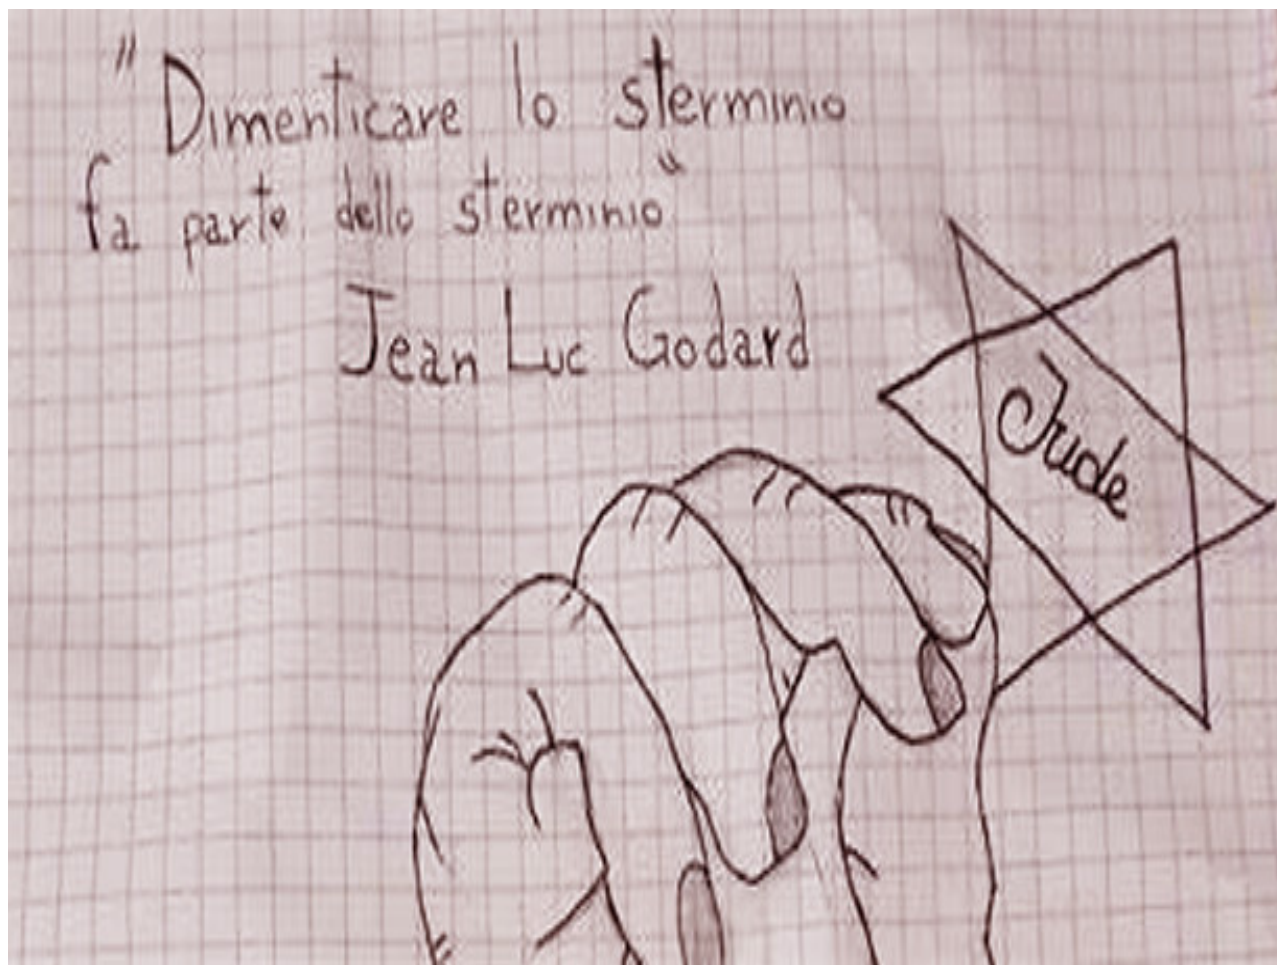 "Dimenticare lo sterminio
fa parte dello sterminio"
Jean Luc Godard
Jude